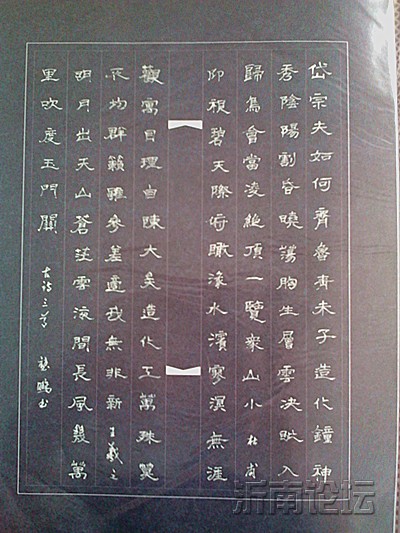 岱宗夫如何齊魯青未了造化鐘神
秀陰陽割昏曉蕩胸生層雲決眦入
歸鳥會當凌絕頂一覽衆山小 杜甫
仰視碧天際俯瞰淥水濱寥溟無涯
觀寓目理自陳大矣造化工萬殊莫
不均群籟雖參差適我無非新 王羲之
明月出天山蒼茫雲海間長風幾萬
里吹度玉門關 古詩三首 鵬書
浙南论坛